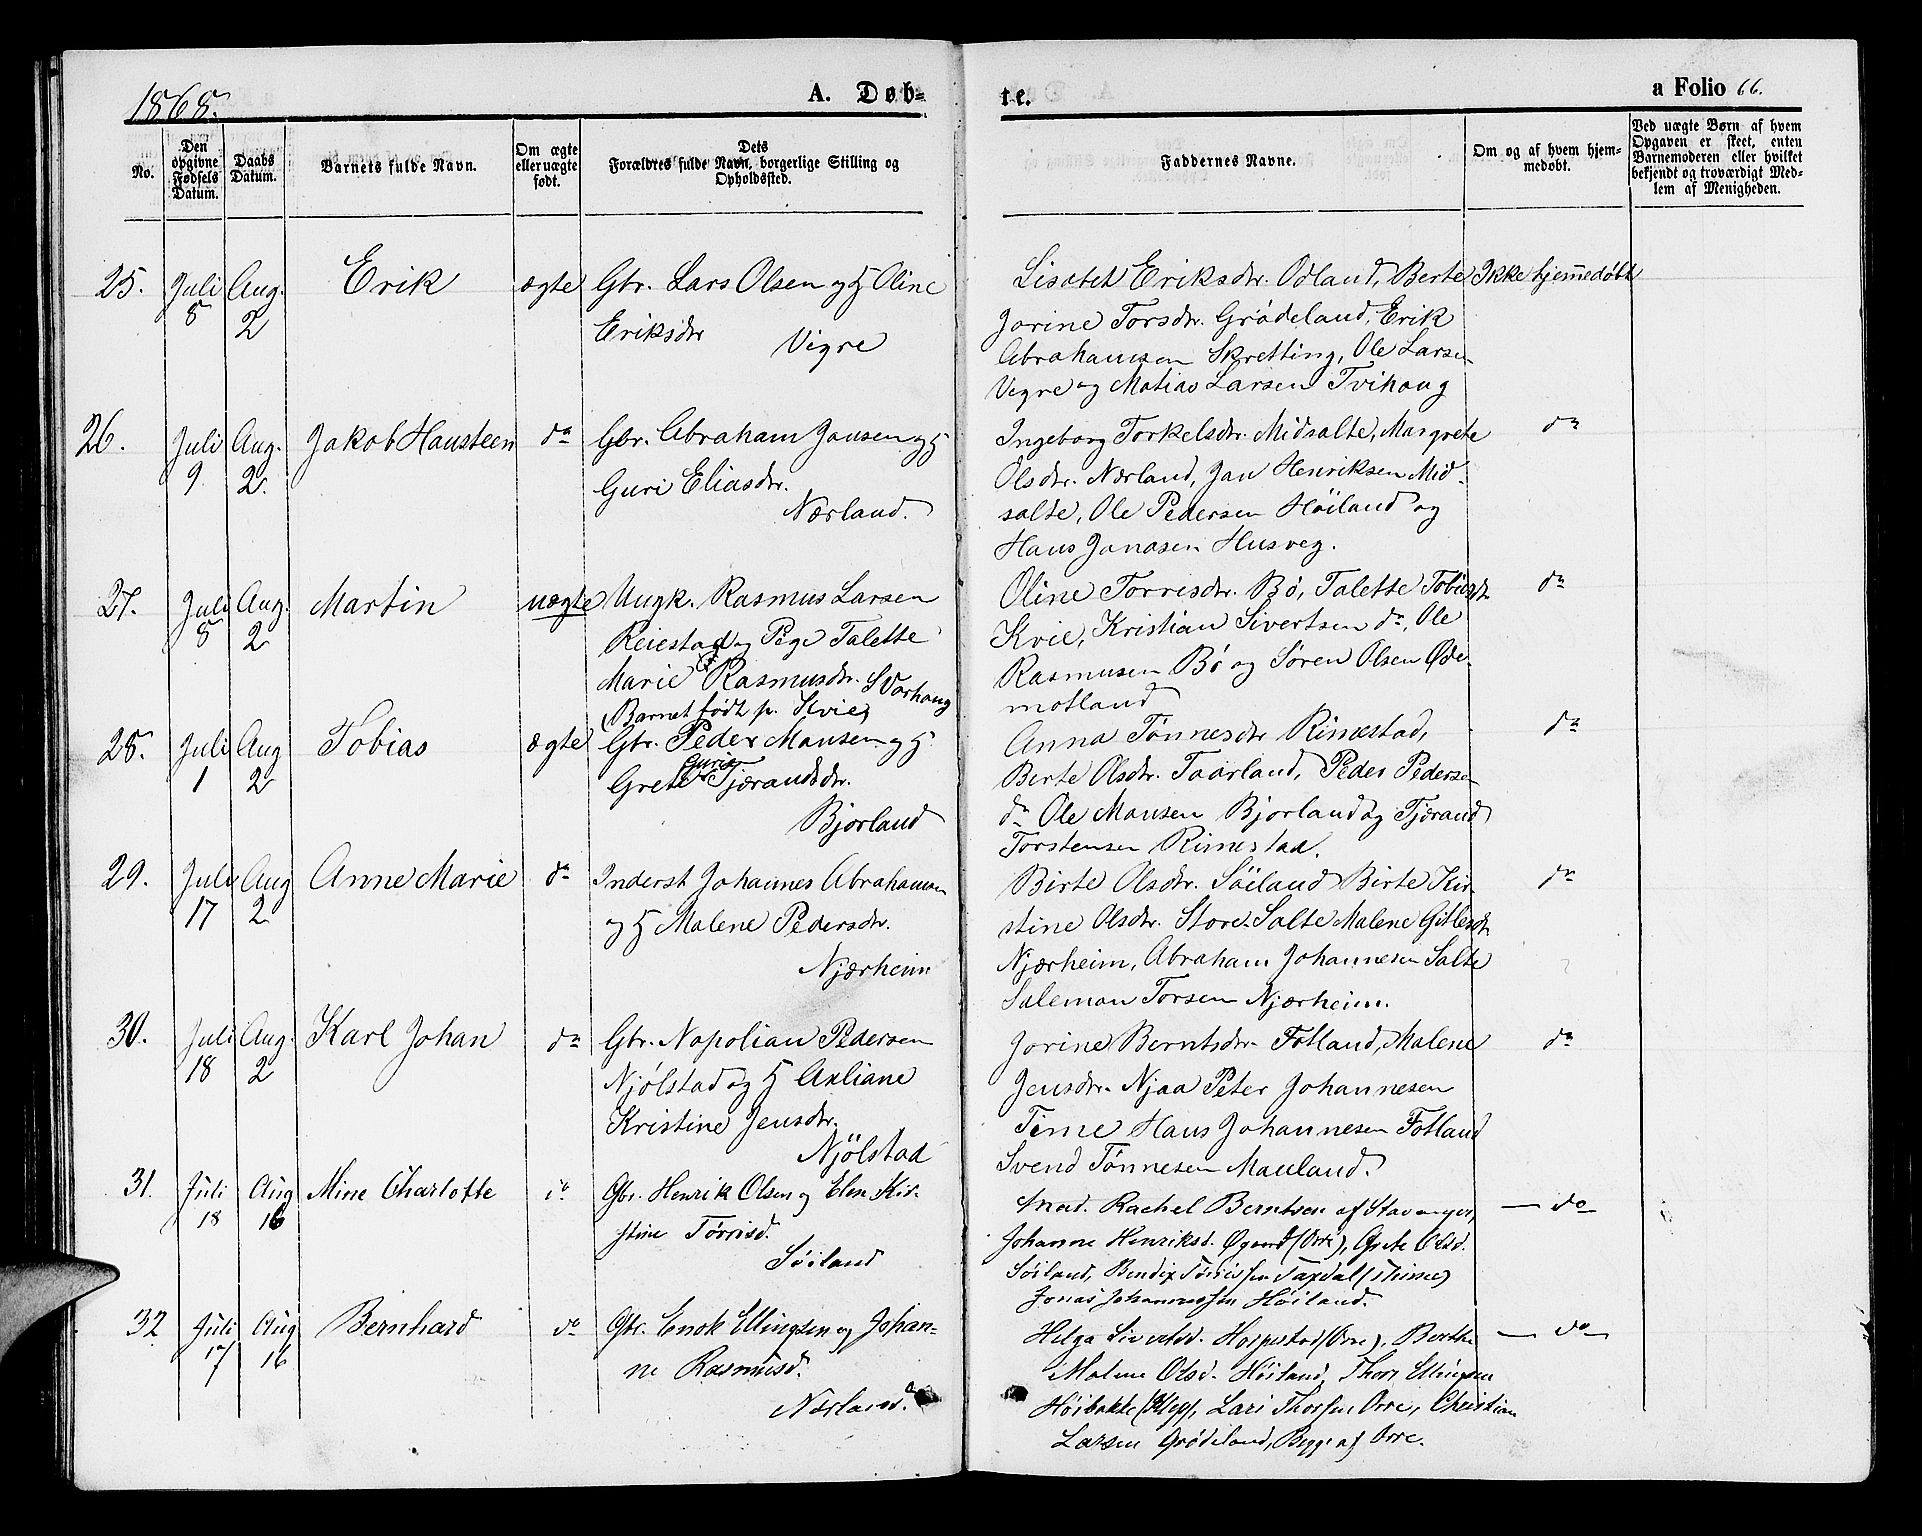 1868.
A. Døb-
te.
a Folio 66.
No.
Den opgivne Fødsels Datum.
Daabs Datum.
Barnets fulde Navn.
Om ægte eller uægte født.
Dets Forældres fulde Navn, borgerlige Stilling og Opholdssted.
Faddernes Navne.
Om og af hvem hjemmedøbt.
Ved uægte Børn af hvem Opgaven er skeet, enten Barnemoderen eller hvilket bekjendt og troværdigt Medlem af Menigheden.
25. Juli 8 Aug. 2 Erik ægte Gbr. Lars Olsen og H Oline
Eriksdtr. Vigre
Lisabet Eriksdtr. Odland, Berte Ikke hjemmedøbt
Jorine Torsdtr. Grødeland, Erik
Abrahamsen Skretting, Ole Larsen
Vigre og Matias Larsen Tvihaug
26. Juli 9 Aug. 2. Jakob Hansteen do Gbr. Abraham Jansen og H
Guri Eliasdtr.
Nærland.
Ingeborg Torkelsdtr. Midsalte, Margrete do
Olsdtr. Nærland, Jan Henriksen Mid-
salte, Ole Pedersen Höiland og
Hans Jonasen Husveg.
27. Juli 8 Aug. 2 Martin uægte Ungk. Rasmus Larsen
Reiestad og Pige Talette
Marie Rasmusdtr. S Varhaug
(Barnet født p. Kvie)
Oline Torrisdtr. Bø, Talette Tobiasdtr. do
Kvie, Kristian Sivertsen do, Ole
Rasmusen Bø og Søren Olsen Øde-
motland
28. Juli 1 Aug 2 Tobias ægte Gbr. Peder Monsen og H
Guri
Grete Tjærandsdtr.
Bjorland
Anna Tønnesdtr Rimestad, do
Berte Olsdtr. Taarland, Peder Pedersen
do Ole Monsen Bjorland og Tjærand
Torstensen Rimestad.
29. Juli 17 Aug 2 Anne Marie do Inderst Johannes Abrahamsen
og H Malene Pedersdtr.
Njærheim
Birte Olsdtr. Söiland Birte Kir- do
stine Olsdtr. Store-Salte Malene Gitlesdtr
Njærheim, Abraham Johannesen Salte
Salemon Torsen Njærheim.
30. Juli 18 Aug. 2 Karl Johan do Gbr. Napolian Pedersen
Njølstad og H Axliane
Kristine Jensdtr.
Njölstad
Jorine Berntsdtr. Fotland, Malene do
Jensdtr. Njaa Peter Johannesen
Time Hans Johannesen Fotland
Svend Tønnesen Mauland.
31. Juli 18 Aug 16 Mine Charlotte do Gbr. Henrik Olsen og Elen Kir-
stine Tørrisd.
Söiland
Mad. Rachel Berntsen af Stavanger, do
Johanne Henriksd. (Orre), Grete Olsd.
Söiland, Bendix Tørrissen Taxdal (Thime)
Jonas Johannessen Höiland.
32 Juli 17 Aug 16 Bernhard do Gbr. Enok Ellingsen og Johan-
ne Rasmusd.
Nærland.
Helga Sivertsd. Horpestad (Orre), Berthe do
Malene Olsd. Höiland, Thore Ellingsen
Höibakke (Klep), Lars Thorsen Orre, Christian
Larsen Grödeland, Begge af Orre.